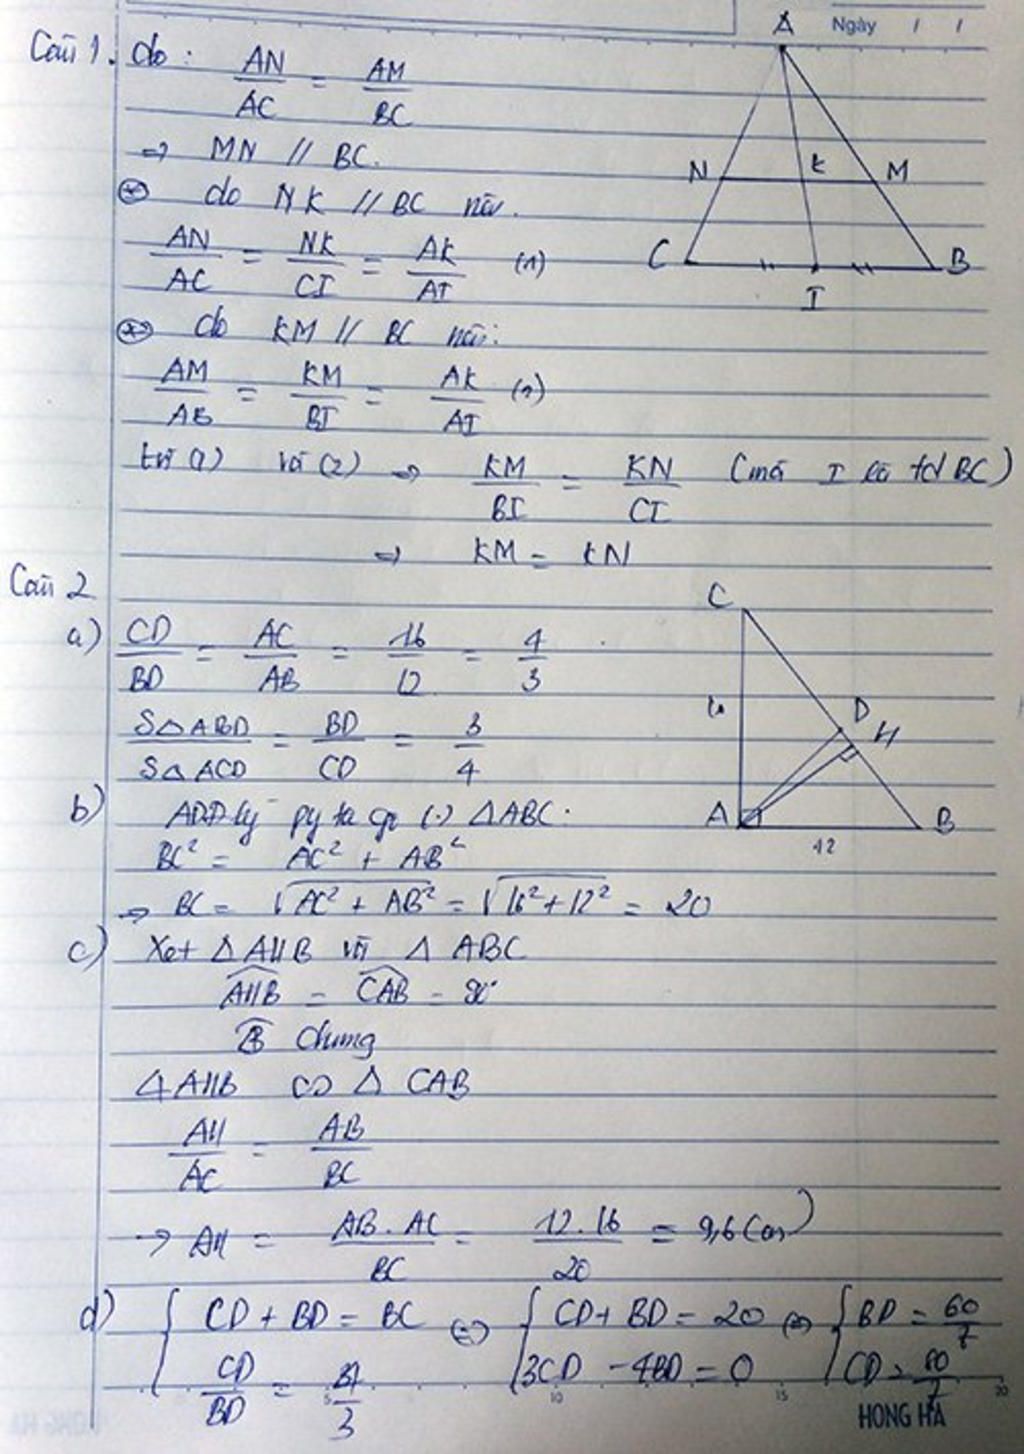 Ngày / /
Câu 1. do: AN/AC = AM/BC
=> MN // BC.
* do NK // BC nên.
AN/AC = NK/CI = AK/AI (1)
* do KM // BC nên:
AM/AB = KM/BI = AK/AI (2)
từ (1) và (2) => KM/BI = KN/CI (mà I là tđ BC)
=> KM = KN
A
N K M
C B
I
Câu 2
a) CD/BD = AC/AB = 16/12 = 4/3
S△ABD/S△ACD = BD/CO = 3/4
b) ADĐlý py ta go (.) △ABC.
BC² = AC² + AB²
=> BC = √AC² + AB² = √16² + 12² = 20
C
D
H
A B
12
c) Xét △AHB và △ABC
AHB = CAB = 90°
B chung
△AHB ∽ △ CAB
AH/AC = AB/BC
-> AH = AB.AC/BC = 12.16/20 = 9,6(cm)
d) { CD + BD = BC <=> { CD + BD = 20 <=> { BD = 60/7
CD/BD = 4/3 3CD - 4BD = 0 CD = 80/7
5 10 15 20
HONG HA